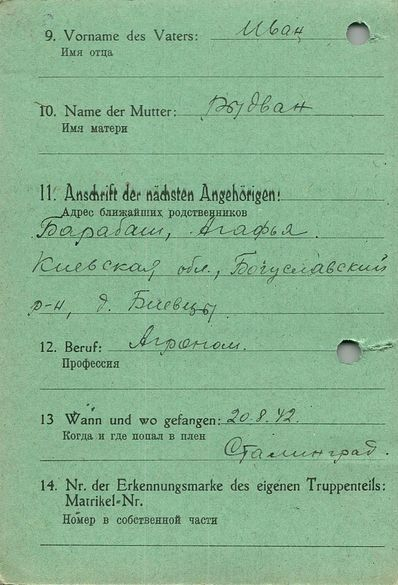 9. Vorname des Vaters: Иван
Имя отца
10. Name der Mutter: Рыдван
Имя матери
11. Anschrift der nächsten Angehörigen:
Адрес ближайших родственников
Барабаш, Агафья
Киевская обл., Богуславский
р-н, д. Биевцы
12. Beruf: Агроном.
Профессия
13 Wann und wo gefangen: 20.8.42.
Когда и где попал в плен
Сталинград.
14. Nr. der Erkennungsmarke des eigenen Truppenteils:
Matrikel-Nr.
Номер в собственной части